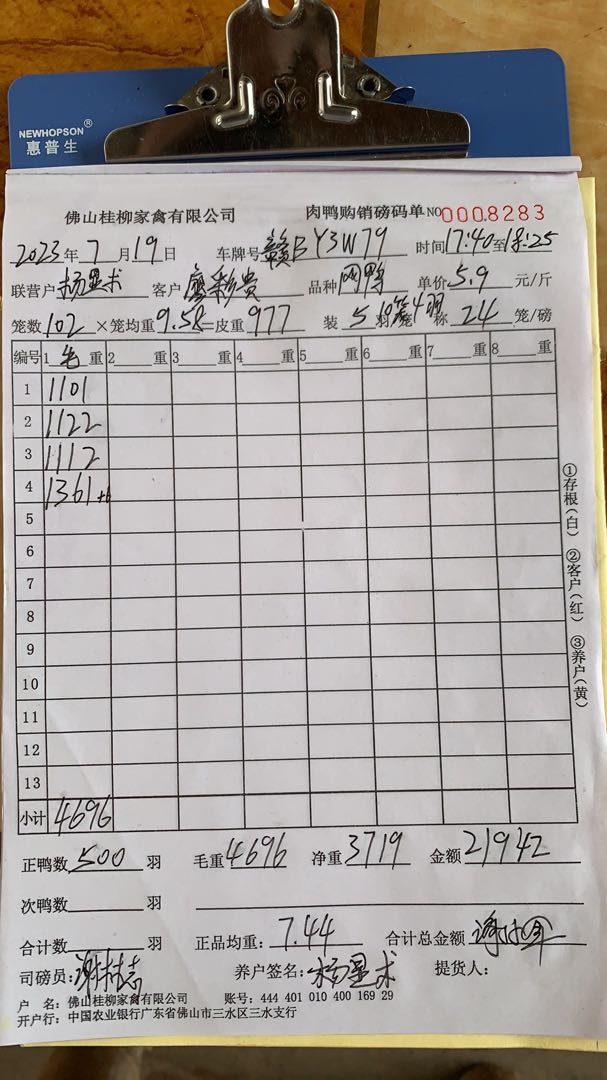 NEWHOPSON®
惠普生
佛山桂柳家禽有限公司 肉鸭购销磅码单 NO 0008283
2023年7月19日 车牌号 赣BY3W79 时间 17:40至18:25
联营户 杨显术 客户 廖彩贵 品种 肉鸭 单价 5.9 元/斤
笼数 102 ×笼均重 9.58 =皮重 977 装 5 称 24 笼/磅
编号 1 毛 重 2 重 3 重 4 重 5 重 6 重 7 重 8 重
1 1101
2 1122
3 1112
4 1361
5
6
7
8
9
10
11
12
13
小计 4696
①存根(白) ②客户(红) ③养户(黄)
正鸭数 500 羽 毛重 4696 净重 3719 金额 21942
次鸭数 羽
合计数 羽 正品均重: 7.44 合计总金额
司磅员: 养户签名: 杨显术 提货人:
户 名: 佛山桂柳家禽有限公司 账号: 444 401 010 400 169 29
开户行: 中国农业银行广东省佛山市三水区三水支行